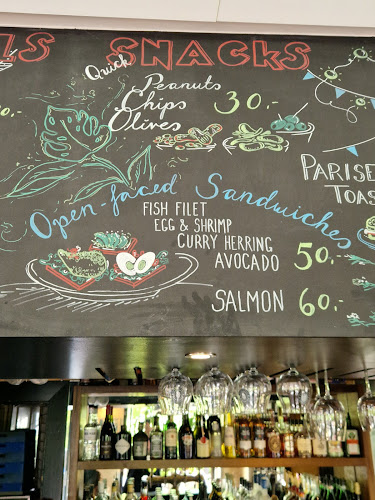 SNACKS
Quick
Peanuts
Chips
Olives
30.-
Open-faced Sandwiches
FISH FILET
EGG & SHRIMP
CURRY HERRING
AVOCADO 50.-
SALMON 60.-
PARISE
TOAS